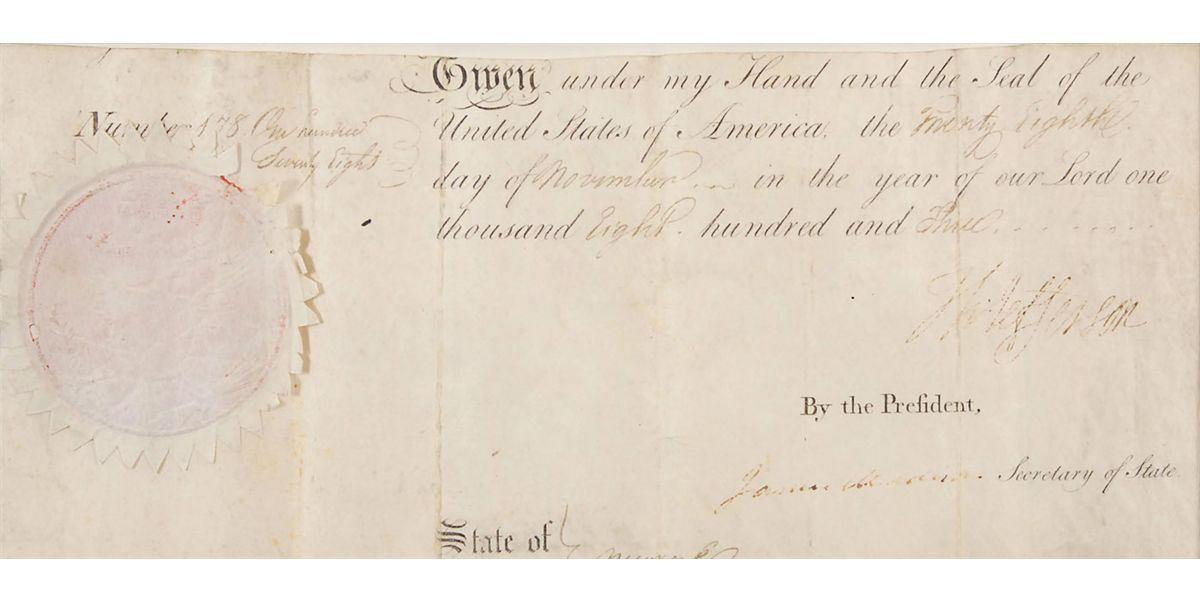 Given under my Hand and the Seal of the
Number 178 One hundred
Seventy Eight
United States of America, the Twenty Eighth
day of November in the year of our Lord one
thousand Eight hundred and Three
Th: Jefferson
By the Preſident,
James Madison Secretary of State.
State of